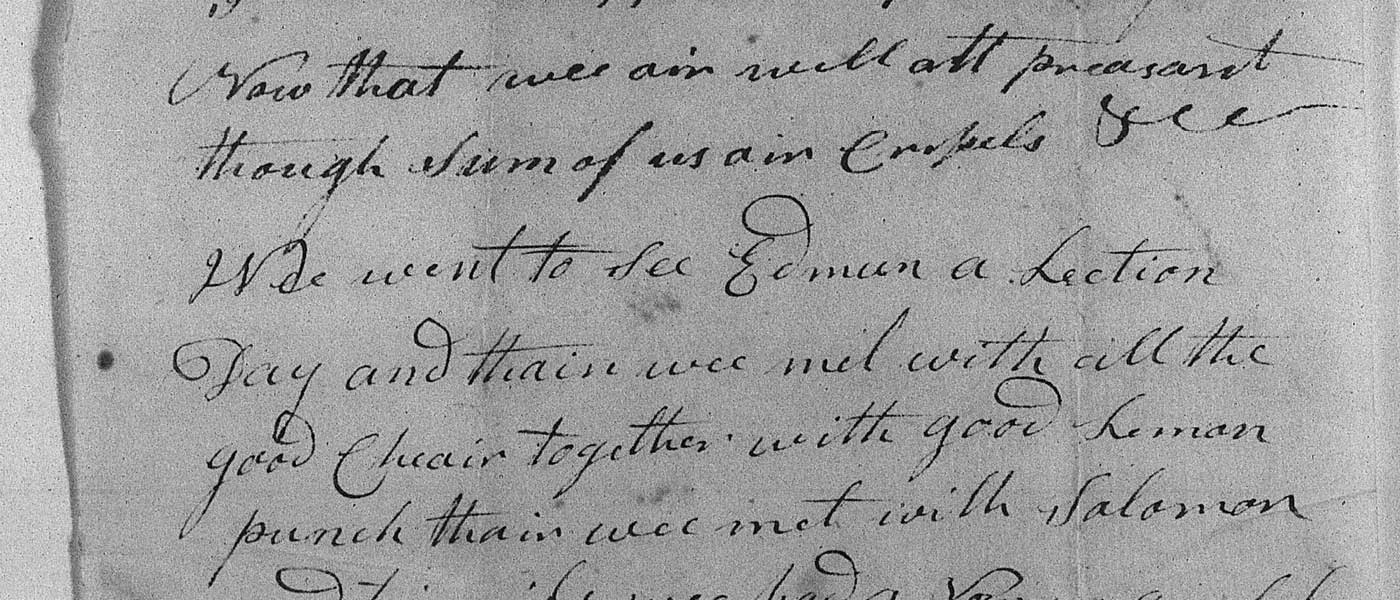 Now that wee air well att preasant
though Sum of us air Cripels &cc
Wee went to See Edmun a Lection
Day and thain wee met with all the
good Cheair together with good Leman
punch thain wee met with Salomon
wee had a